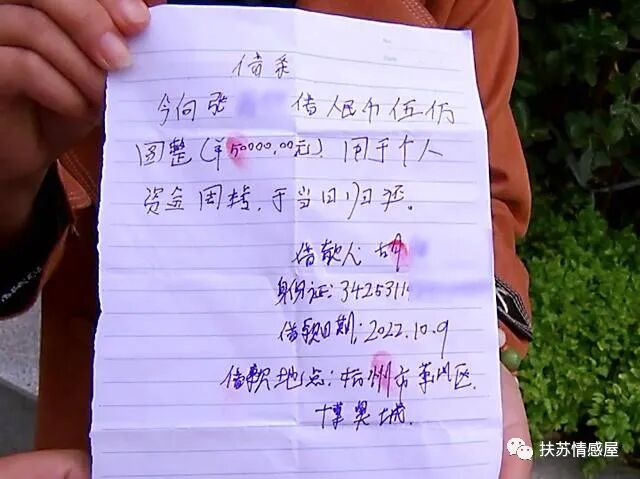 借条
今向张 借人民币伍仟
圆整(¥50000.00元)用于个人
资金周转,于当日归还。
借款人 胡
身份证:3425311
借款日期:2022.10.9
借款地点:杭州市萧山区
博奥城
扶苏情感屋